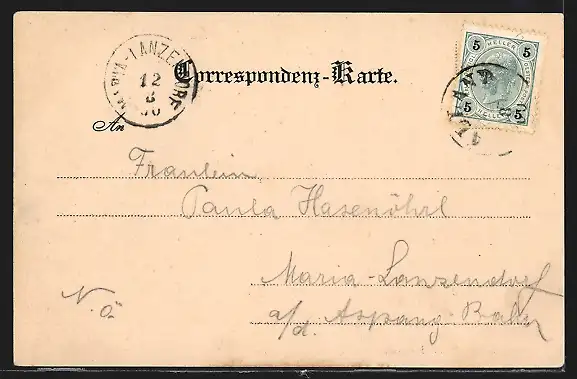 MARIA-LANZENDORF
12
8
00
Correspondenz-Karte.
5 HELLER 5
5 HELLER 5
An
Fräulein
Paula Hasenöhrl
Maria-Lanzendorf
a/d. Aspang-Bahn
N. Ö